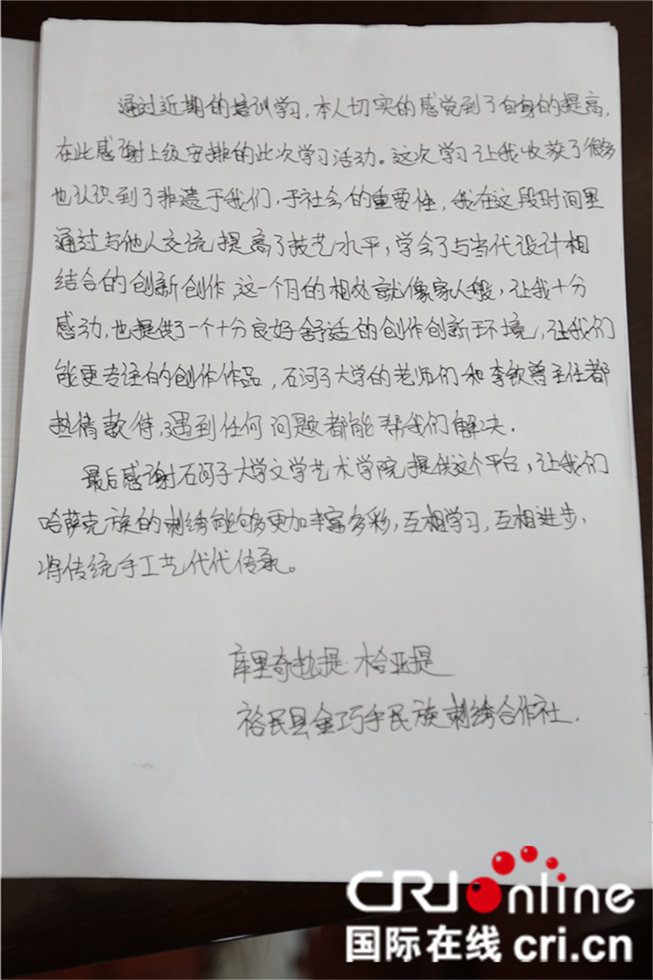 通过近期的培训学习，本人切实的感觉到了自身的提高，
在此感谢上级安排的此次学习活动。这次学习让我收获了很多
也认识到了非遗于我们，于社会的重要性，我在这段时间里
通过与他人交流提高了技艺水平，学会了与当代设计相
结合的创新创作，这一个月的相处就像家人般，让我十分
感动，也提供了一个十分良好舒适的创作创新环境，让我们
能更专注的创作作品，石河子大学的老师们和李钦曾主任都
热情款待，遇到任何问题都能帮我们解决．
最后感谢石河子大学文学艺术学院提供这个平台，让我们
哈萨克族的刺绣能够更加丰富多彩，互相学习，互相进步，
将传统手工艺代代传承。
库里奇拉提·哈亚提
裕民县金巧手民族刺绣合作社．
CRIonline
国际在线 cri.cn